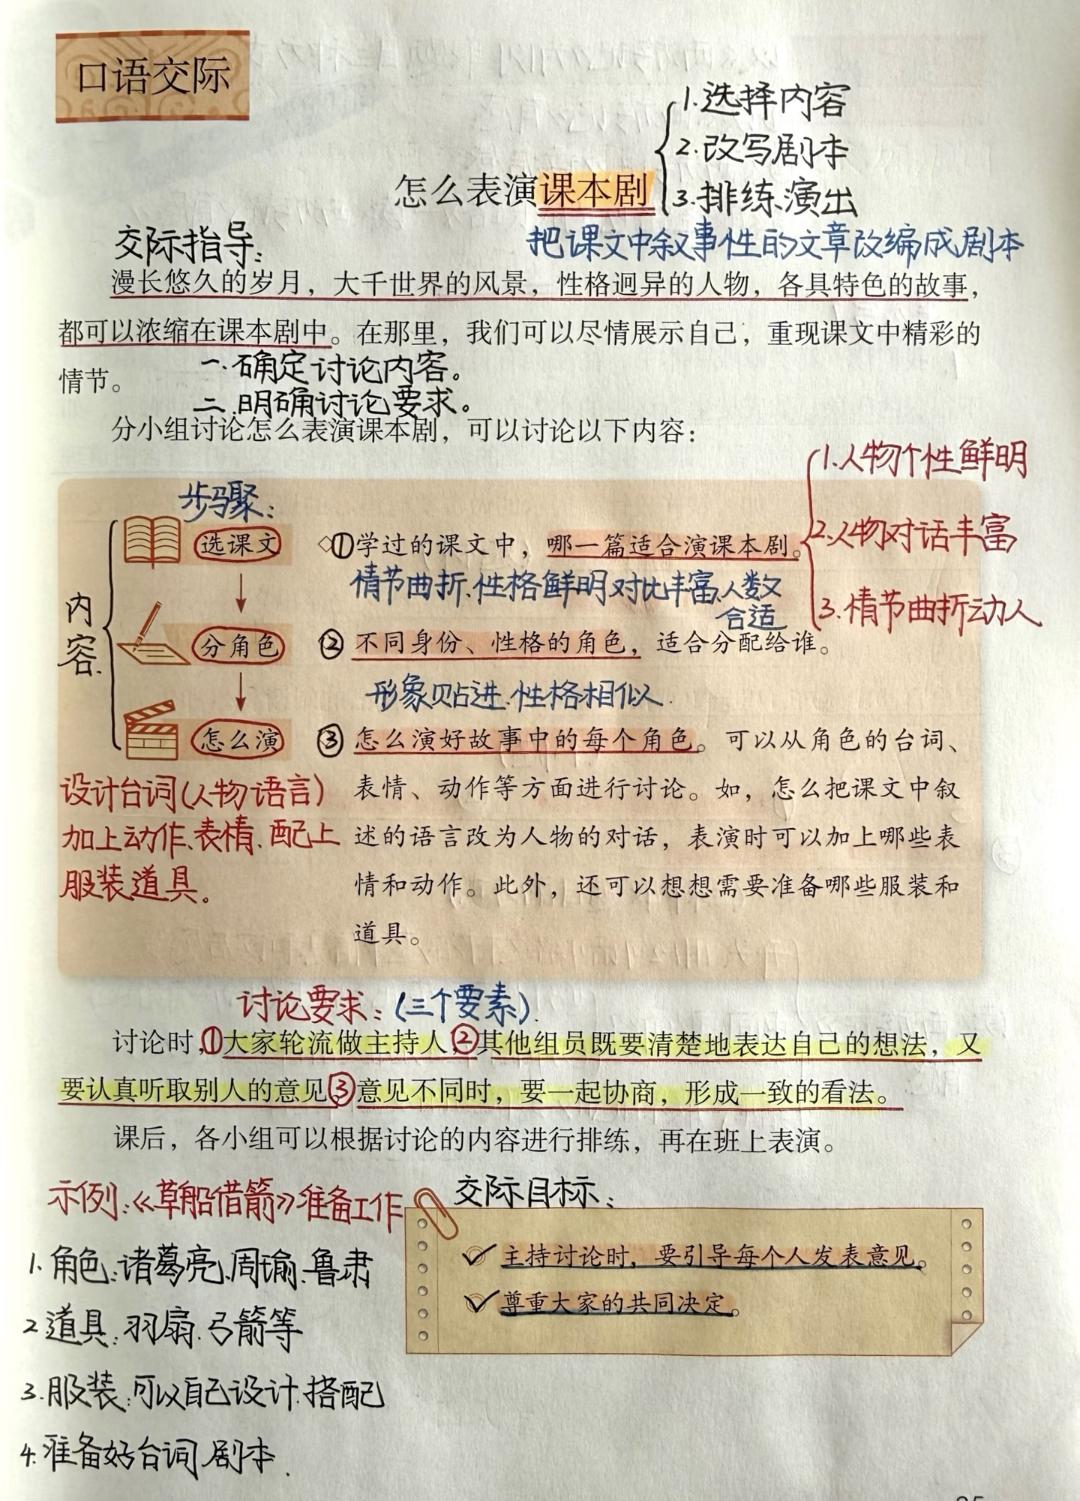 口语交际
1.选择内容
2.改写剧本
怎么表演课本剧
3.排练、演出
交际指导:
把课文中叙事性的文章改编成剧本
漫长悠久的岁月，大千世界的风景，性格迥异的人物，各具特色的故事，
都可以浓缩在课本剧中。在那里，我们可以尽情展示自己，重现课文中精彩的
情节。
一.确定讨论内容。
二.明确讨论要求。
分小组讨论怎么表演课本剧，可以讨论以下内容：
1.人物个性鲜明
2.人物对话丰富
3.情节曲折动人
步骤:
内容.
选课文
①学过的课文中，哪一篇适合演课本剧。
情节曲折.性格鲜明对比丰富.人数
合适
分角色
②不同身份、性格的角色，适合分配给谁。
形象贴进.性格相似.
怎么演
③怎么演好故事中的每个角色。可以从角色的台词、
表情、动作等方面进行讨论。如，怎么把课文中叙
述的语言改为人物的对话，表演时可以加上哪些表
情和动作。此外，还可以想想需要准备哪些服装和
道具。
设计台词(人物语言)
加上动作、表情.配上
服装道具。
讨论要求:(三个要素).
讨论时,①大家轮流做主持人②其他组员既要清楚地表达自己的想法，又
要认真听取别人的意见③意见不同时，要一起协商，形成一致的看法。
课后，各小组可以根据讨论的内容进行排练，再在班上表演。
示例:《草船借箭》准备工作
1.角色:诸葛亮.周瑜.鲁肃
2道具:羽扇.弓箭等
3.服装:可以自己设计.搭配
4.准备好台词.剧本.
交际目标:
主持讨论时，要引导每个人发表意见。
尊重大家的共同决定。